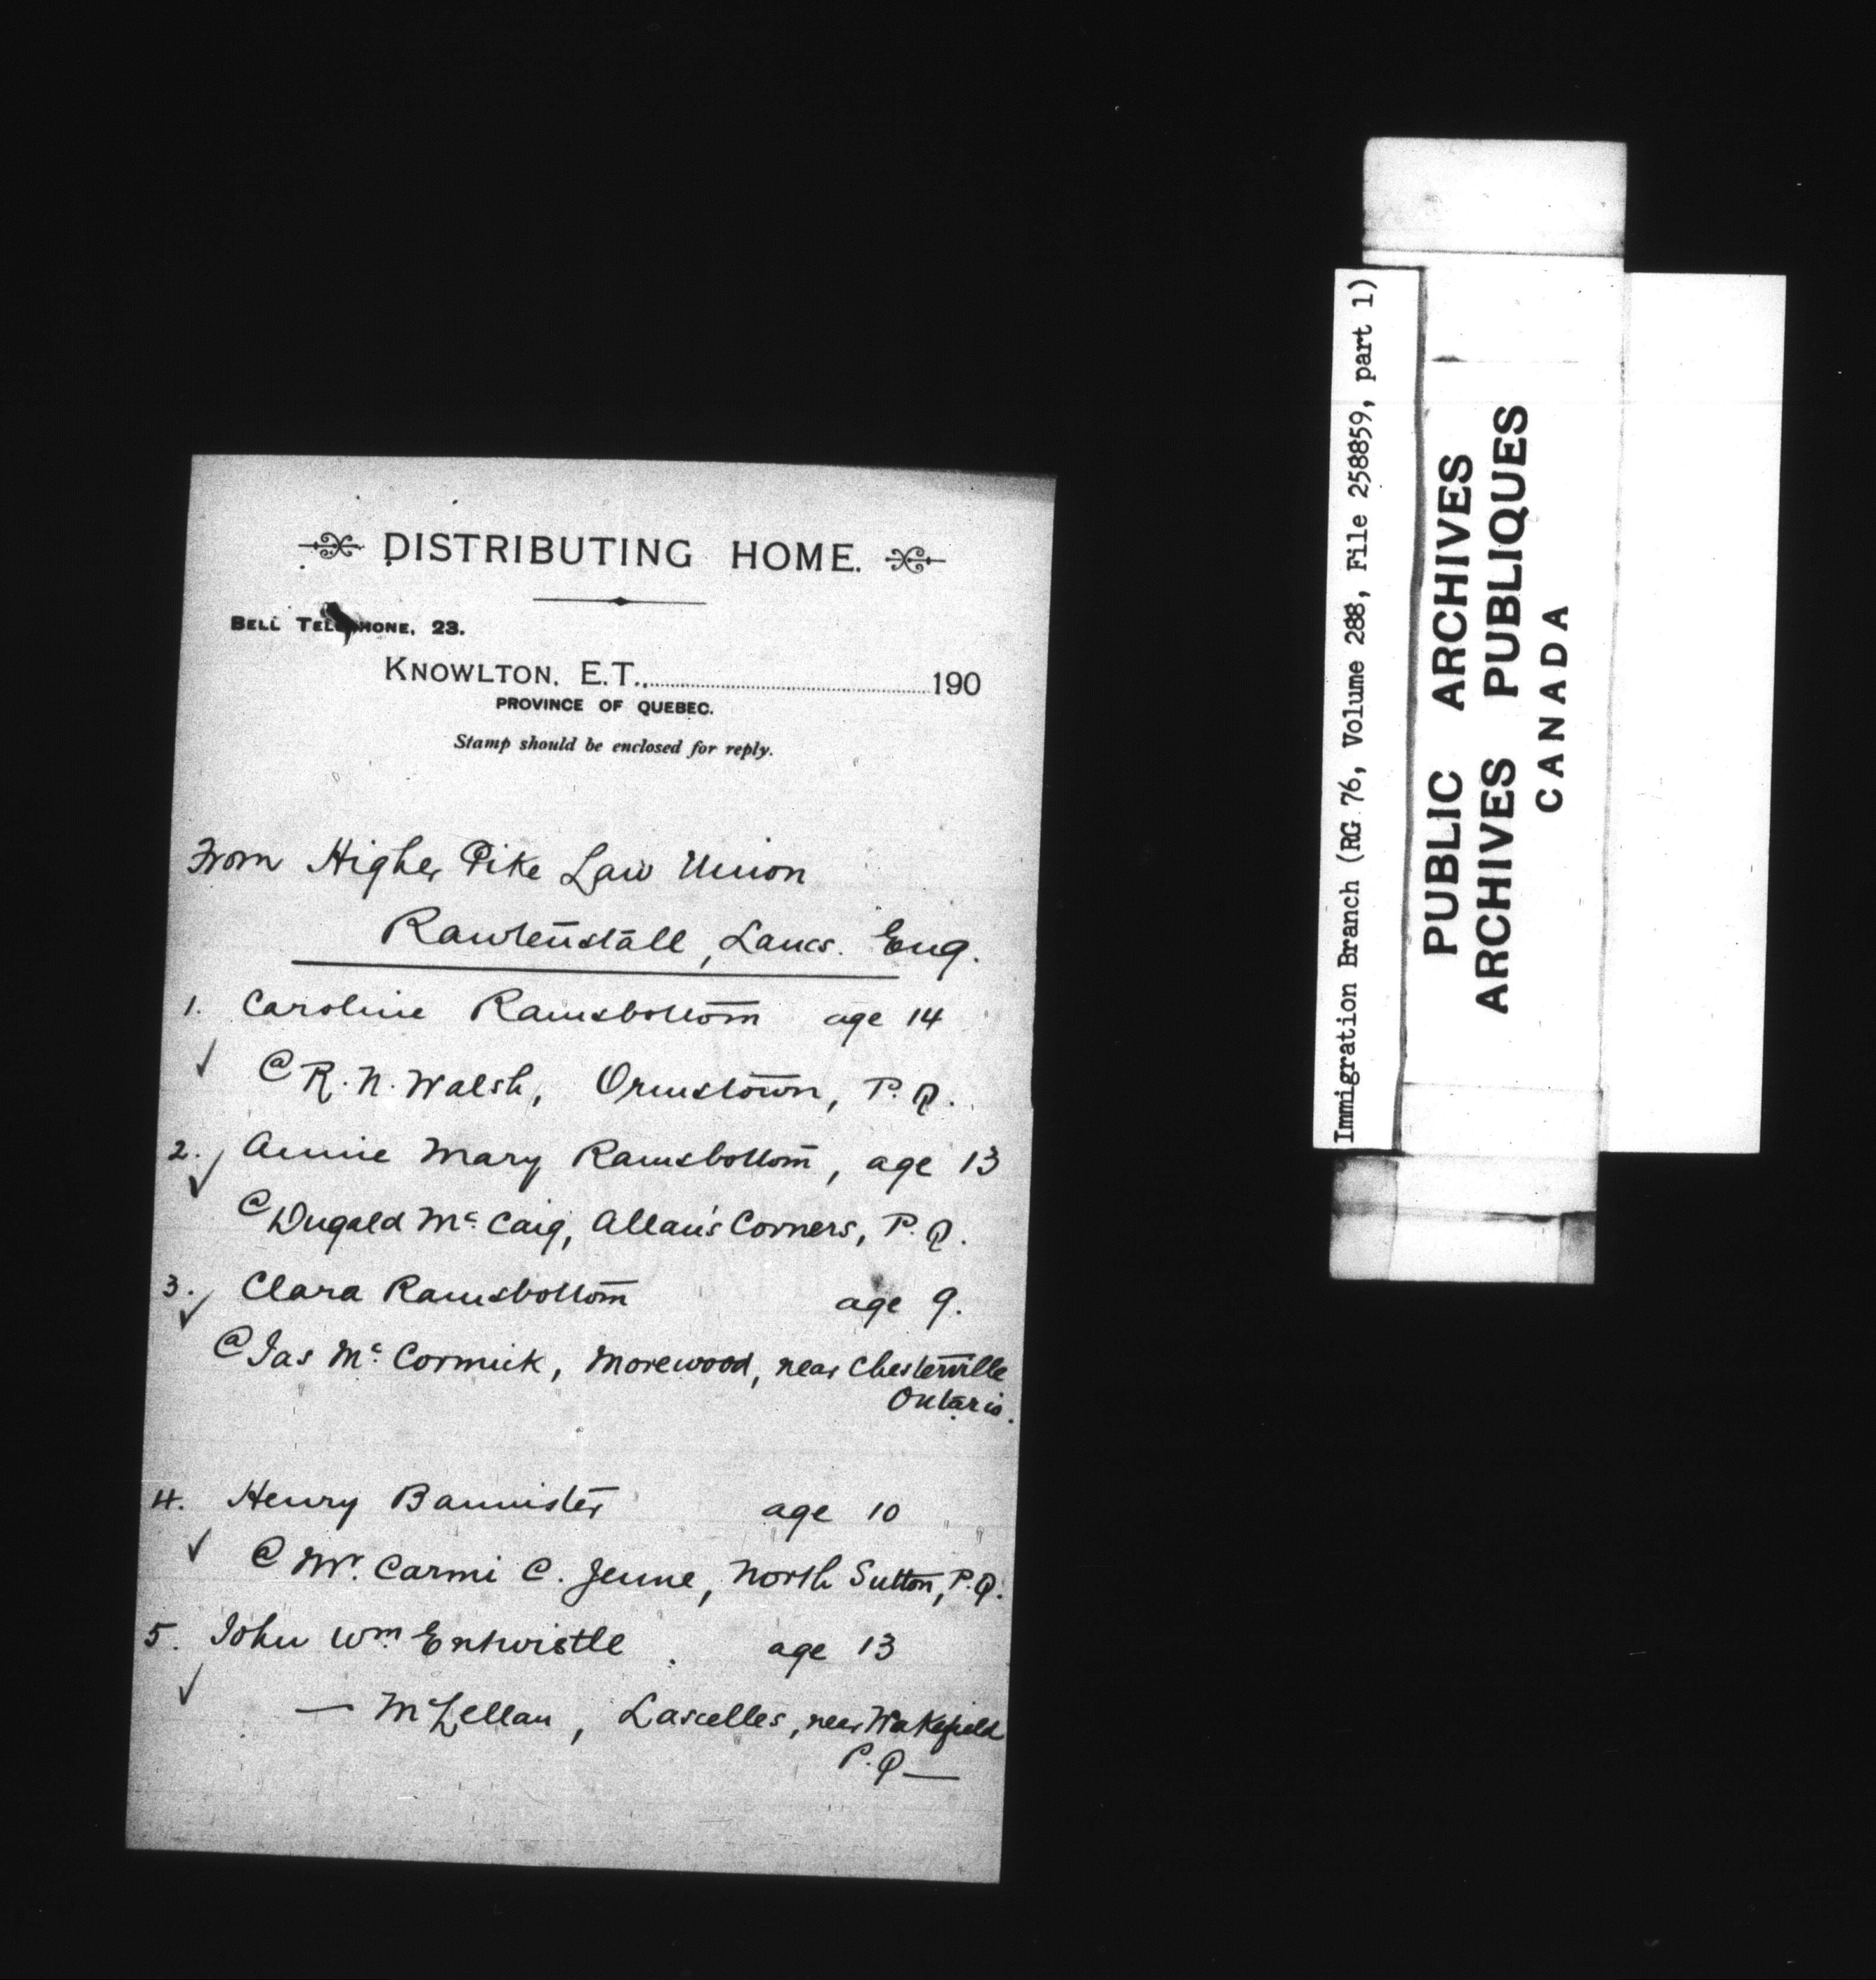 DISTRIBUTING HOME.
BELL TELEPHONE, 23.
KNOWLTON, E.T., 190
PROVINCE OF QUEBEC.
Stamp should be enclosed for reply.
From Higher Pike Law Union
Rawtenstall, Lancs. Eng.
1. Caroline Ramsbottom age 14
@ R. N. Walsh, Ormstown, P.Q.
2. Annie Mary Ramsbottom, age 13
@ Dugald Mc Caig, Allan's Corners, P.Q.
3. Clara Ramsbottom age 9.
@ Jas Mc Cormick, Morewood, near Chesterville
Ontario.
4. Henry Bannister age 10
@ Mr. Carmi C. Jenne, North Sutton, P.Q.
5. John Wm Entwistle. age 13
— McLellan, Lascelles, near Wakefield
P.Q—
Immigration Branch (RG 76, Volume 288, File 258859, part 1)
PUBLIC ARCHIVES
ARCHIVES PUBLIQUES
CANADA